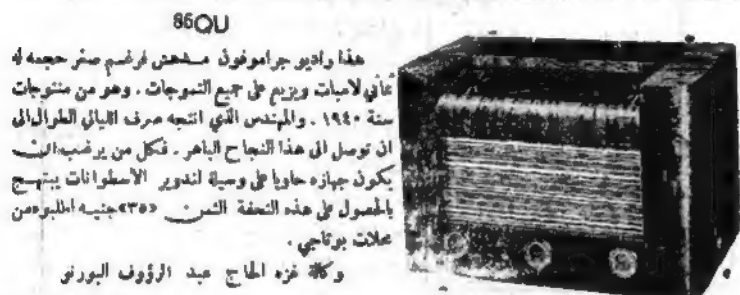 86QU
هذا راديو جراموفون مدهش فرغم صغر حجمه له
ثماني لامبات ويزيع على جميع التموجات . وهو من منتوجات
سنة ١٩٤٠ . والمهندس الذي انتجه صرف الليالي الطوال الى
ان توصل الى هذا النجاح الباهر . فكل من يرغب ان
يكون جهازه حاويا على وسيلة لتدوير الاسطوانات يبتهج
بالحصول على هذه التحفة الثمن «٣٥» جنيه اطلبوه من
محلات بوتاجي .
وكالة غزه الحاج عبد الرؤوف البورنو